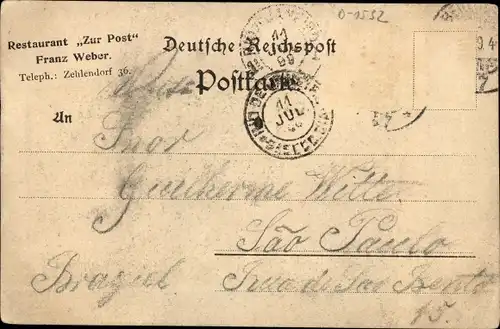 D-1532
Restaurant „Zur Post"
Franz Weber.
Teleph.: Zehlendorf 36.
Deutsche Reichspost
Postkarte
An
Snor
Guilherme Witte
São Paulo
Brazil Rua de São Bento
15.
11
99
11
JUL